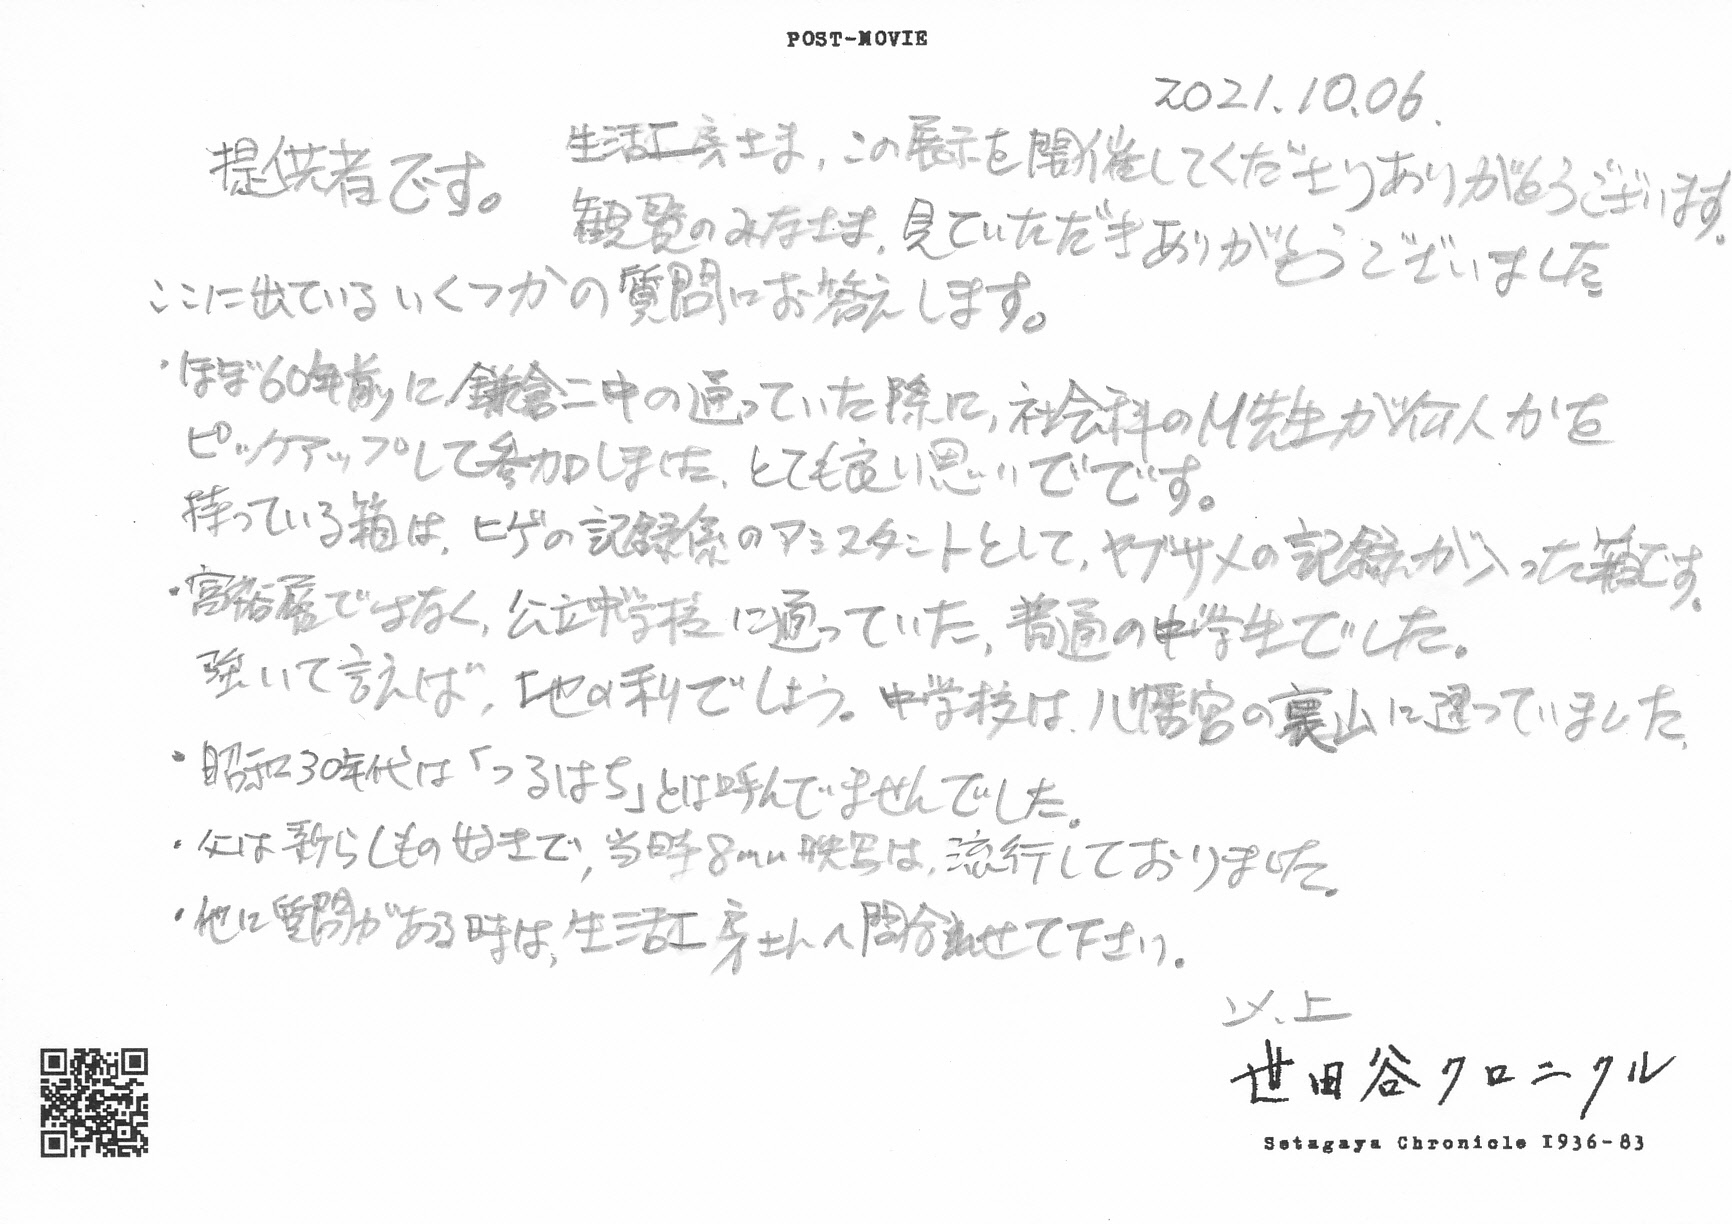 POST-MOVIE
2021.10.06.
提供者です。
生活工房さま、この展示を開催してくださりありがとうございます。
観覧のみなさま、見ていただきありがとうございました
ここに出ているいくつかの質問にお答えします。
・ほぼ60年前に、鎌倉二中の通っていた際に、社会科のM先生が何人かを
ピックアップして参加しました、とても良い思いでです。
持っている箱は、ヒゲの記録係のアシスタントとして、ヤブサメの記録が入った箱です。
・富裕層ではなく、公立中学校に通っていた、普通の中学生でした。
強いて言えば、地の利でしょう。中学校は、八幡宮の裏山に建っていました、
・昭和30年代は「つるはち」とは呼んでませんでした。
・父は新らしもの好きで、当時8mm映写は、流行しておりました。
・他に質問がある時は、生活工房さんへ問合わせて下さい。
以上
世田谷クロニクル
Setagaya Chronicle 1936-83